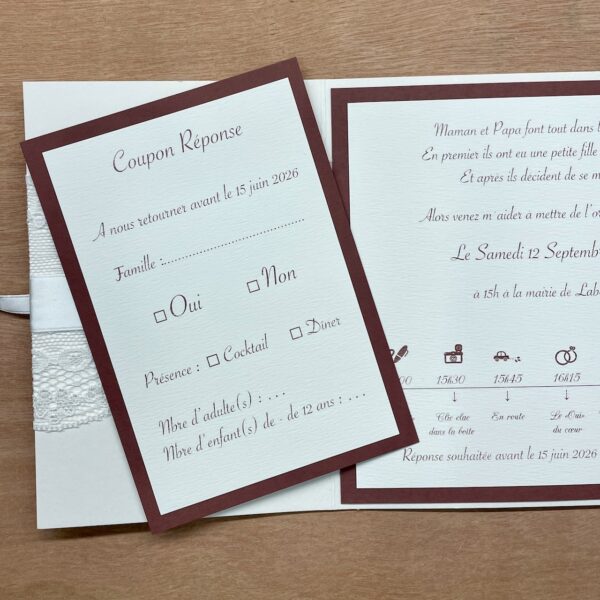 Coupon Réponse
A nous retourner avant le 15 juin 2026
Famille :..............................
Oui Non
Présence : Cocktail Dîner
Nbre d'adulte(s) : ...
Nbre d'enfant(s) de - de 12 ans : ...
Maman et Papa font tout dans
En premier ils ont eu une petite fille
Et après ils décident de se
Alors venez m'aider à mettre de l'
Le Samedi 12
à 15h à la mairie de
15h30 15h45 16h15
Clic clac En route Le Oui
dans la boîte du cœur
Réponse souhaitée avant le 15 juin 2026